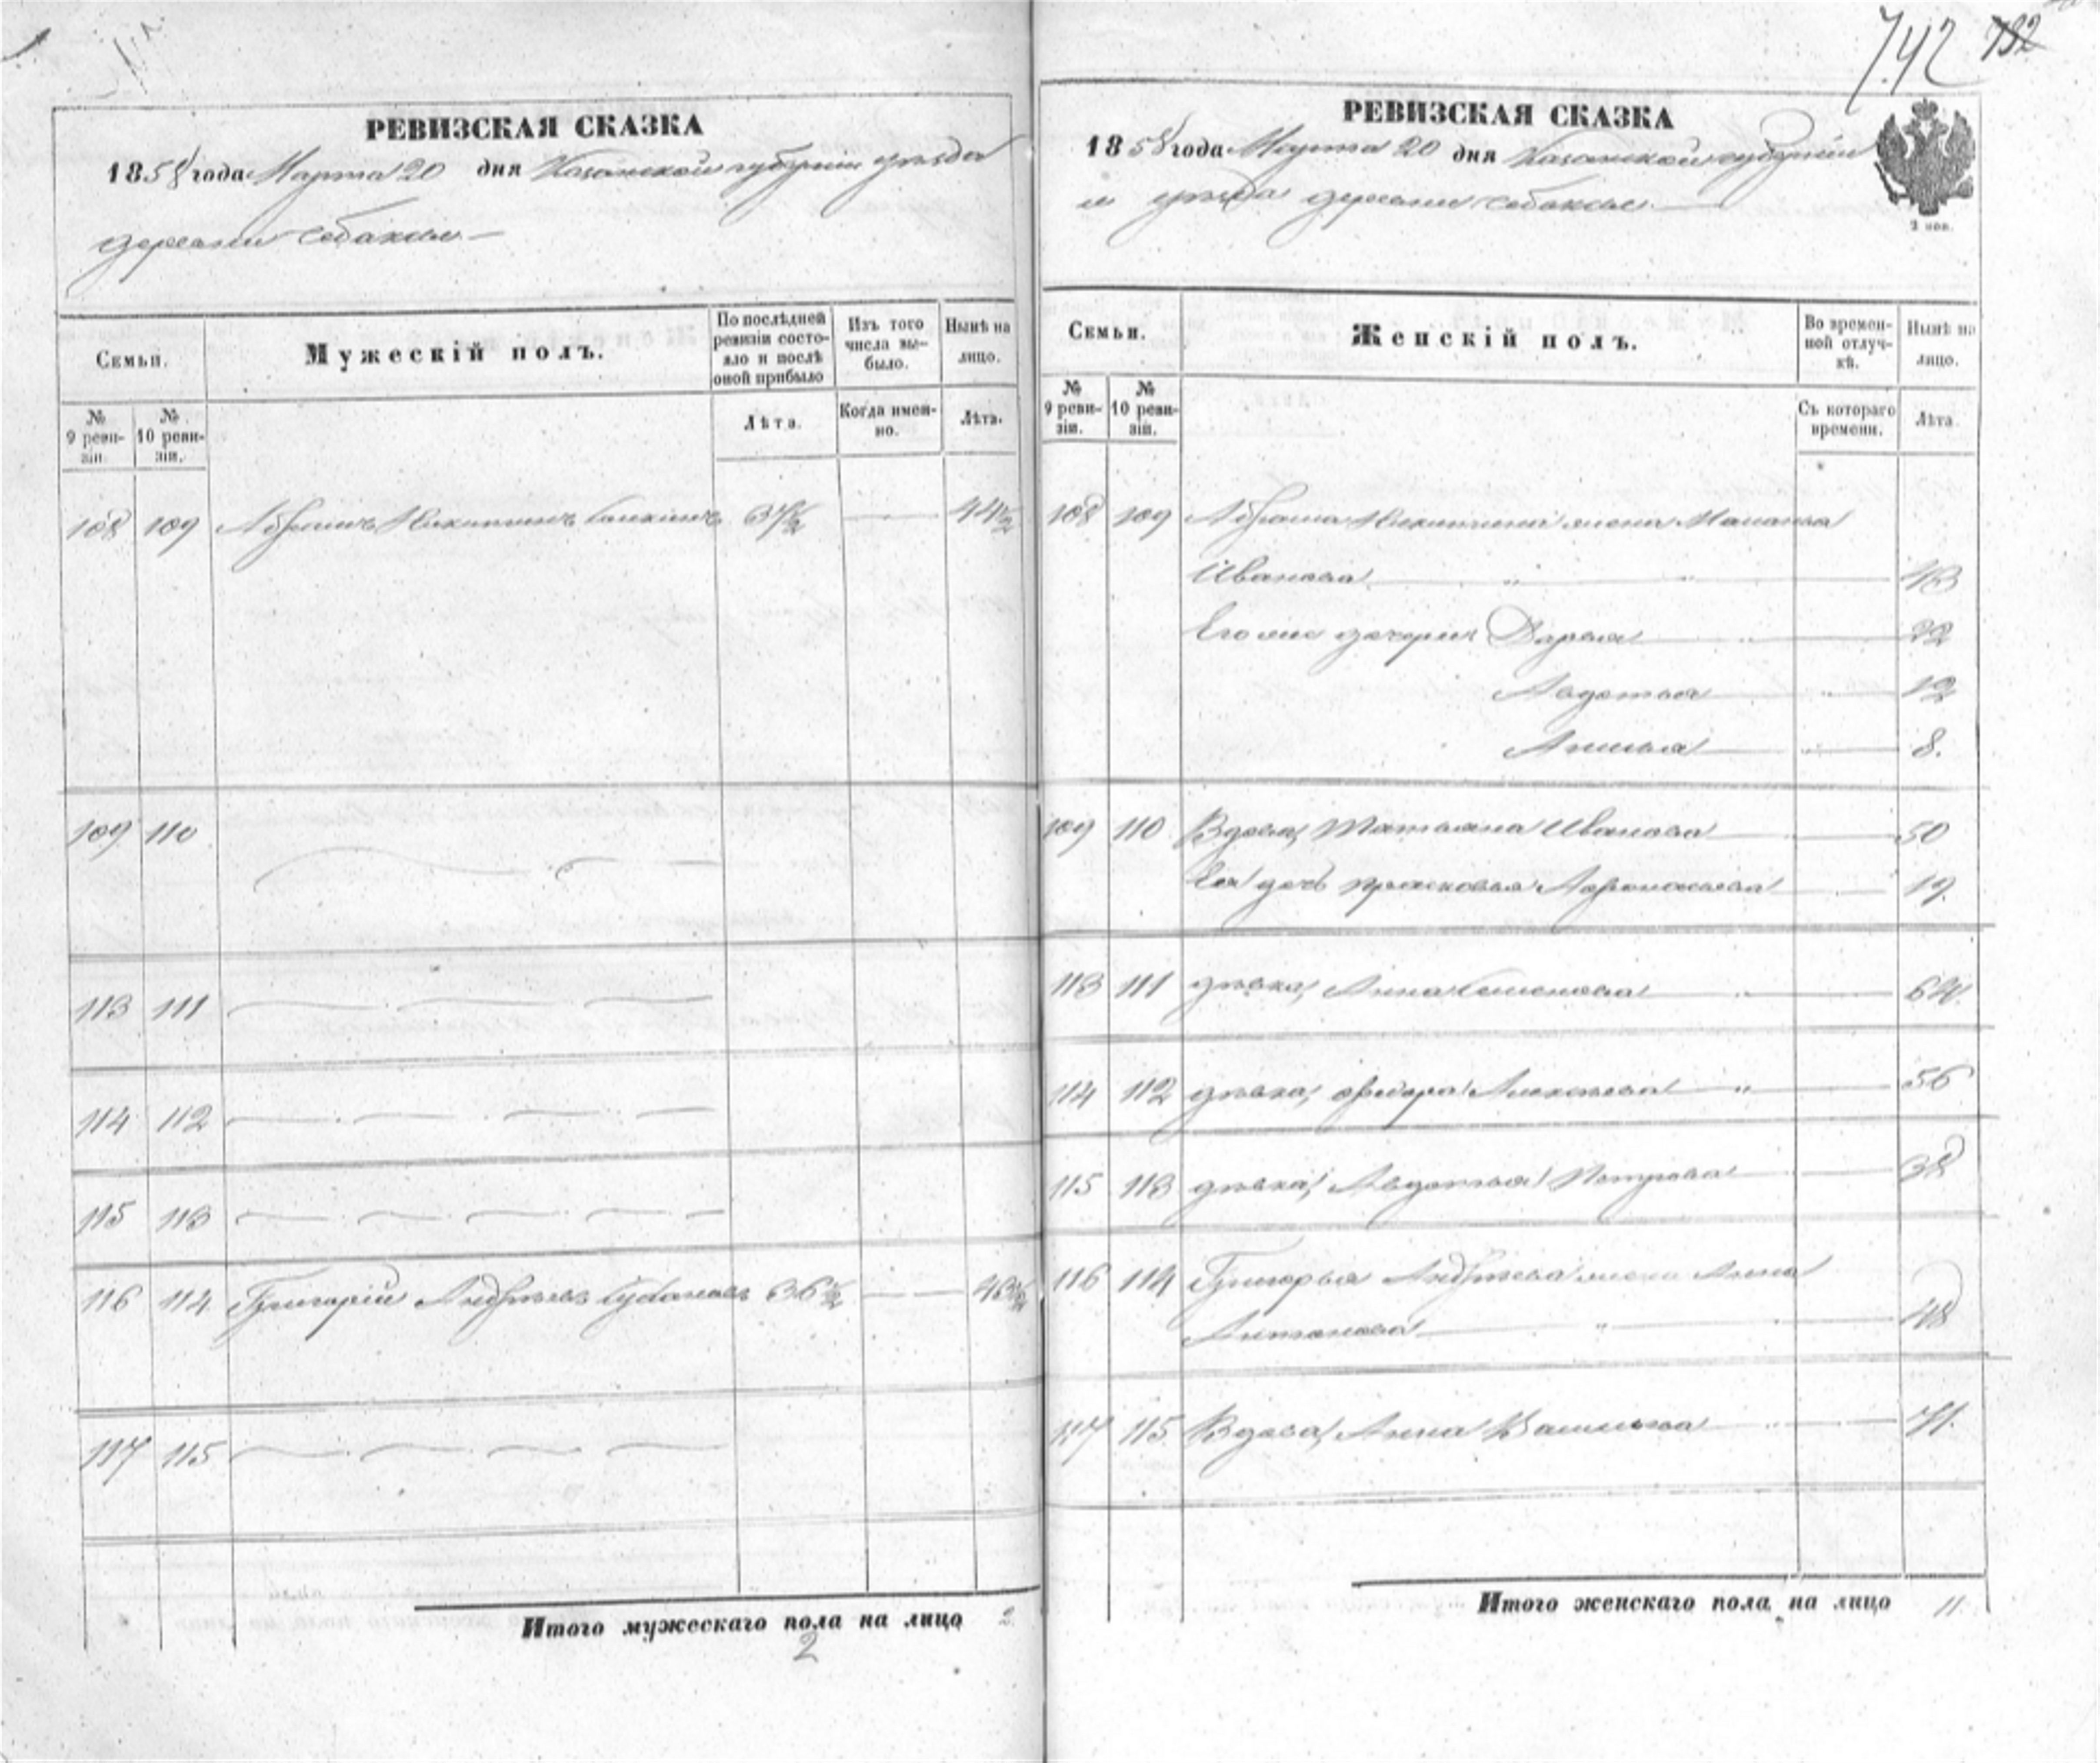 742 732
РЕВИЗСКАЯ СКАЗКА
1858 года Марта 20 дня Казанской губернии уѣзда
деревни
Семьи.
Мужескій полъ.
По послѣдней ревизіи состо-
яло и послѣ
оной прибыло
Изъ того
числа вы-
было.
Нынѣ на
лицо.
№
9 реви-
зіи.
№
10 реви-
зіи.
Лѣта.
Когда имен-
но.
Лѣта.
108 109 Абрамъ Никитинъ 37½ — 44½
109 110
113 111
114 112
115 113
116 114 Григорій Андреевъ 36½ — 46½
117 115
Итого мужескаго пола на лицо 2
2
РЕВИЗСКАЯ СКАЗКА
1858 года Марта 20 дня Казанской губерніи
и уѣзда деревни
2 коп.
Семьи.
Женскій полъ.
Во времен-
ной отлуч-
кѣ.
Нынѣ на
лицо.
№
9 реви-
зіи.
№
10 реви-
зіи.
Съ котораго
времени.
Лѣта.
108 109 Абрама Никитина жена Маланья
Иванова 43
Его же дочери Дарья 22
Авдотья 12
8.
109 110 Вдова, Татьяна Иванова 50
Ея дочь Прасковья Афонасьева 19.
113 111 дѣвка, Анна Семенова 64.
114 112 дѣвка, Алексѣева 56
115 113 дѣвка, Авдотья Петрова 38
116 114 Григорья Андреева жена Анна
Антонова 48
117 115 Вдова, Анна Васильева 71.
Итого женскаго пола на лицо 11.